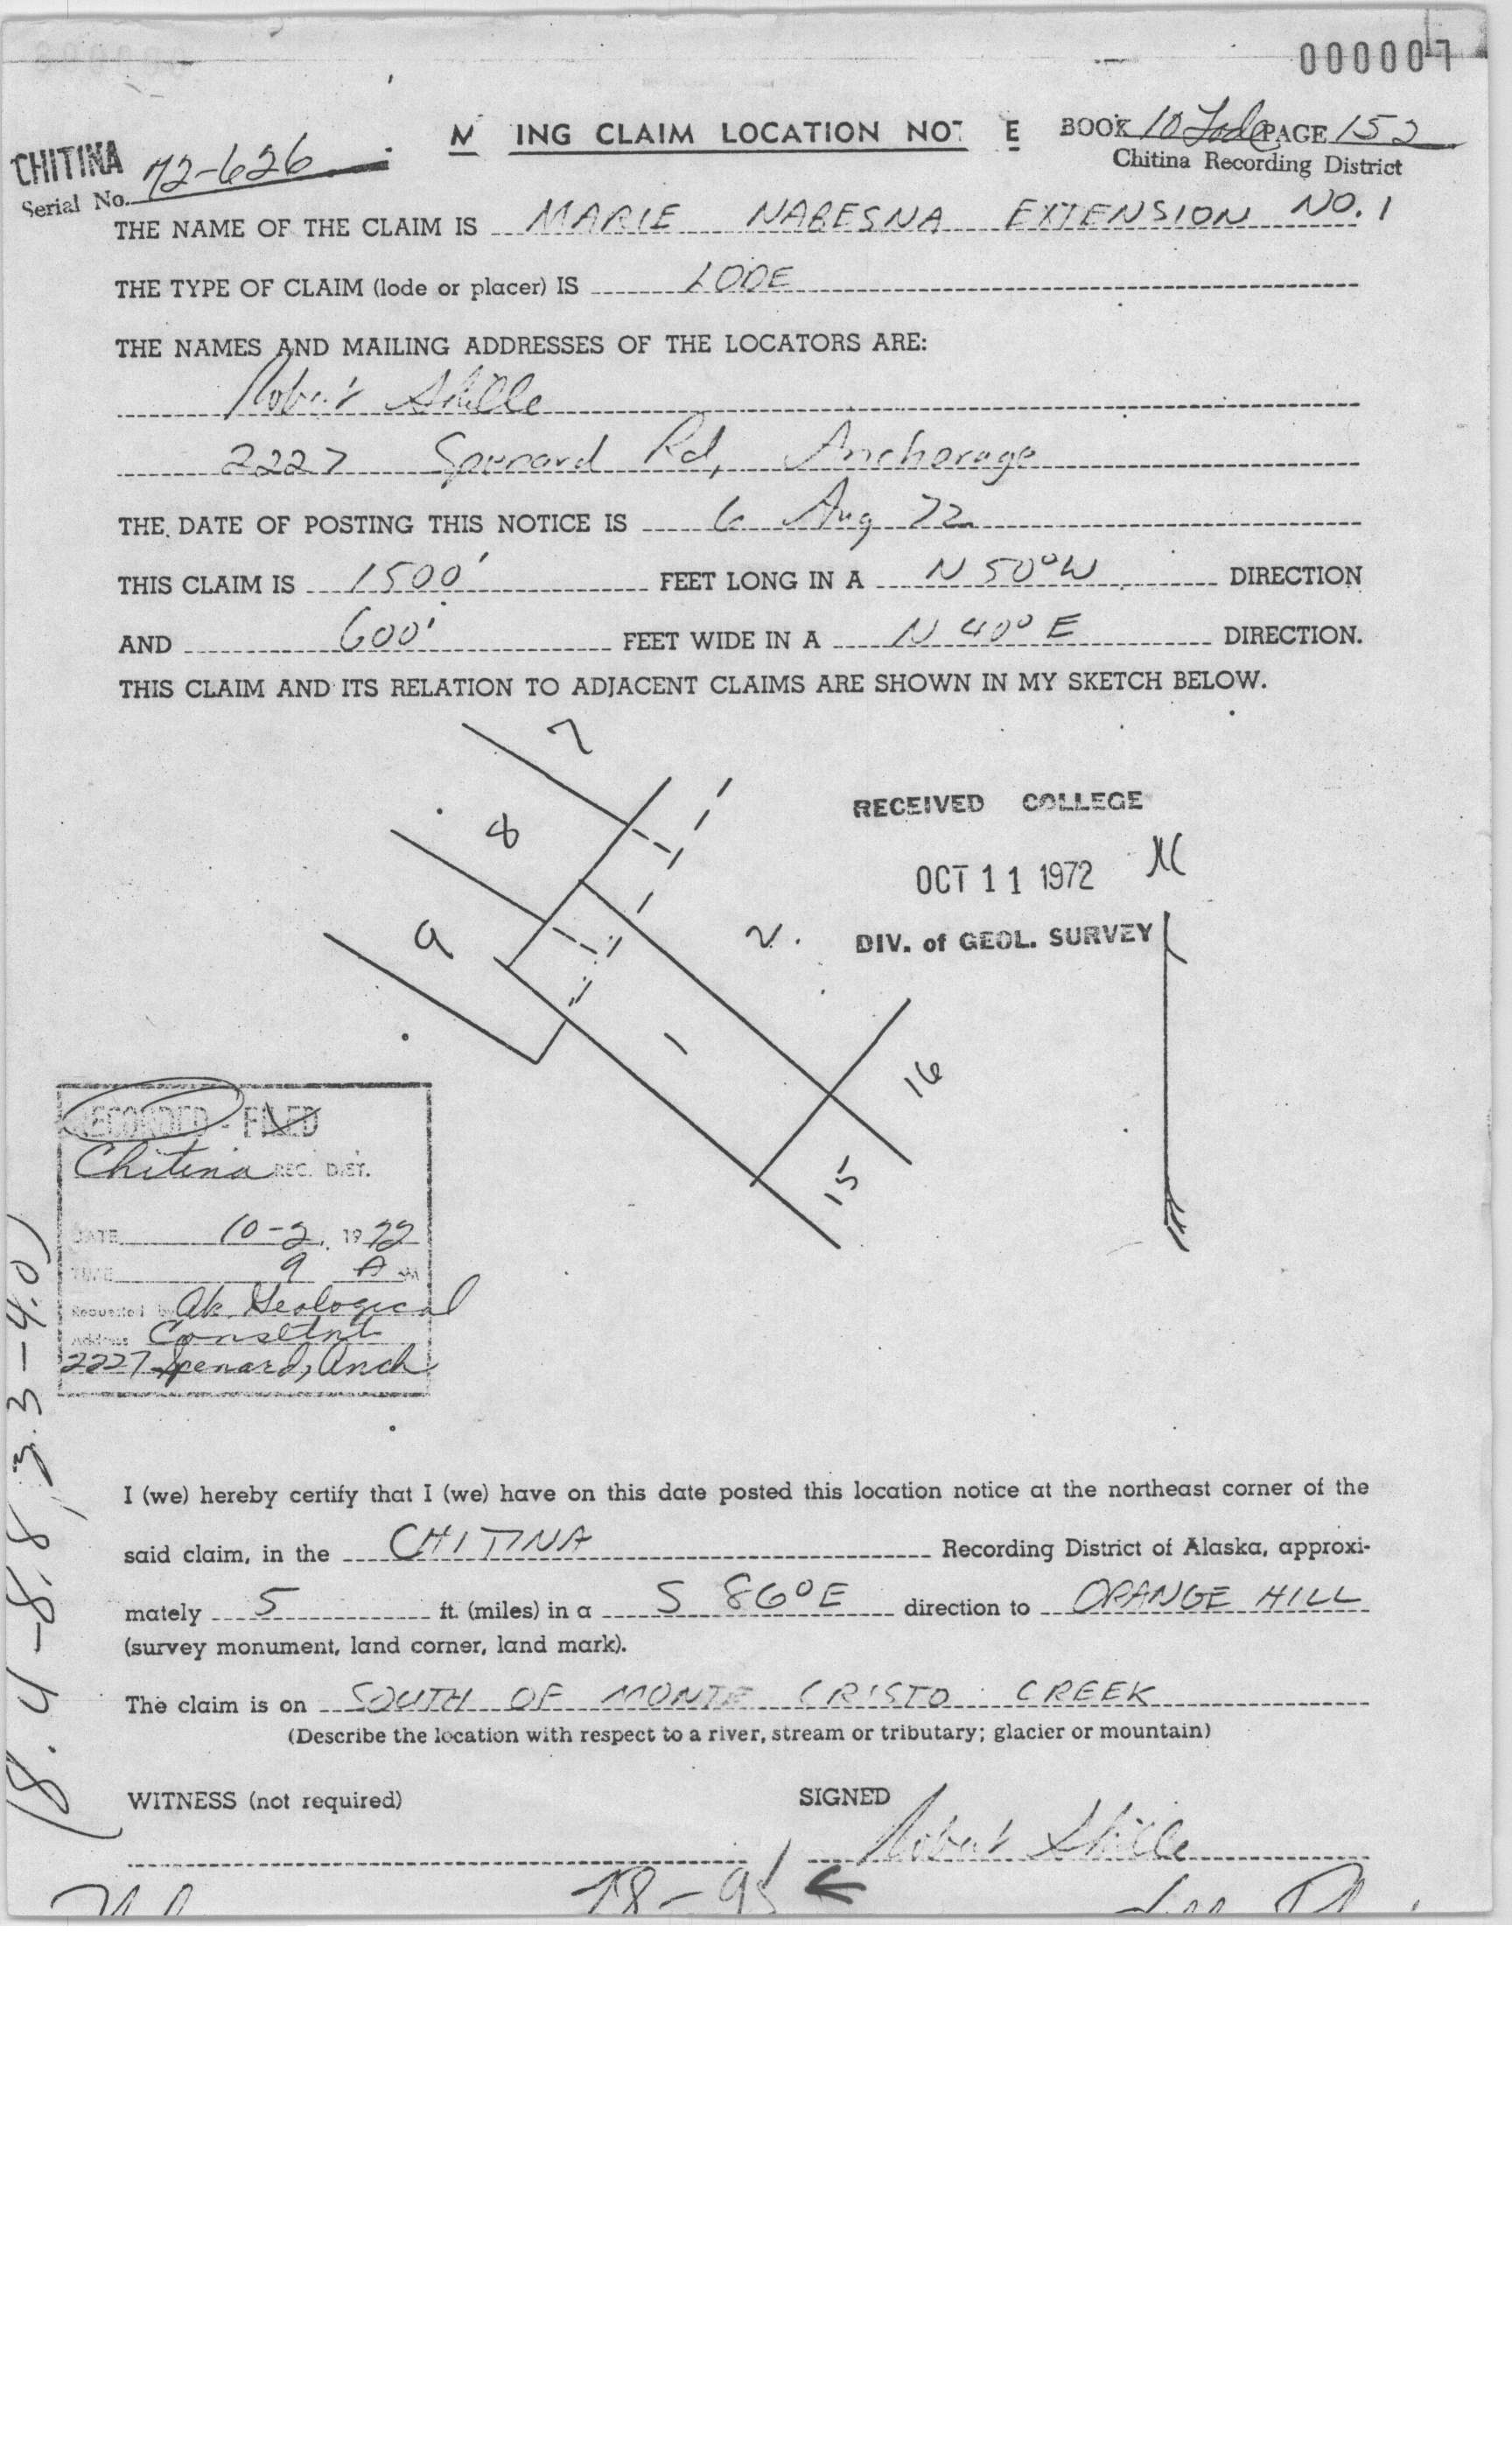 000007
M ING CLAIM LOCATION NOT E
BOOK 10 Lode PAGE 152
Chitina Recording District
CHITINA
Serial No. 72-626
THE NAME OF THE CLAIM IS MARIE NABESNA EXTENSION NO. 1
THE TYPE OF CLAIM (lode or placer) IS LODE
THE NAMES AND MAILING ADDRESSES OF THE LOCATORS ARE:
Robert
2227 Spenard Rd, Anchorage
THE DATE OF POSTING THIS NOTICE IS 6 Aug 72
THIS CLAIM IS 1500' FEET LONG IN A N 50° W DIRECTION
AND 600' FEET WIDE IN A N 40° E DIRECTION.
THIS CLAIM AND ITS RELATION TO ADJACENT CLAIMS ARE SHOWN IN MY SKETCH BELOW.
7
8
9
2.
1
16
15
RECEIVED COLLEGE
OCT 11 1972
DIV. of GEOL. SURVEY
N
RECORDED - FILED
Chitina REC. DIST.
DATE 10-2, 1972
TIME 9 A M
Requested by Ak. Geological
Address Consltnt
2227 Spenard, Anch
I (we) hereby certify that I (we) have on this date posted this location notice at the northeast corner of the
said claim, in the CHITINA Recording District of Alaska, approxi-
mately 5 ft. (miles) in a S 86° E direction to ORANGE HILL
(survey monument, land corner, land mark).
The claim is on SOUTH OF MONTE CRISTO CREEK
(Describe the location with respect to a river, stream or tributary; glacier or mountain)
WITNESS (not required)
SIGNED
Robert
78-95
(8.4-8.8, 3.3-4.0)